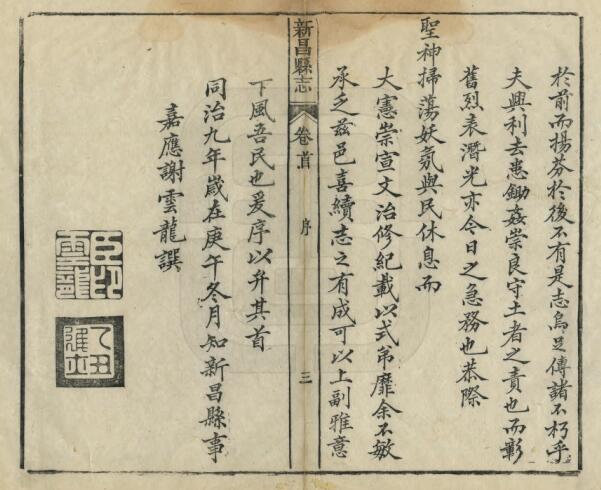 於前而揚芬於後不有是志烏足傳諸不朽乎
夫興利去患鋤姦崇良守土者之責也而彰
舊烈表潛光亦今日之急務也恭際
聖神掃蕩妖氛與民休息而
大憲崇宣文治修紀載以式弟靡余不敏
承乏茲邑喜續志之有成可以上副雅意
新昌縣志
卷首
序
三
下風吾民也爰序以弁其首
同治九年歲在庚午冬月知新昌縣事
嘉應謝雲龍譔
臣印
雲龍
乙丑
進士